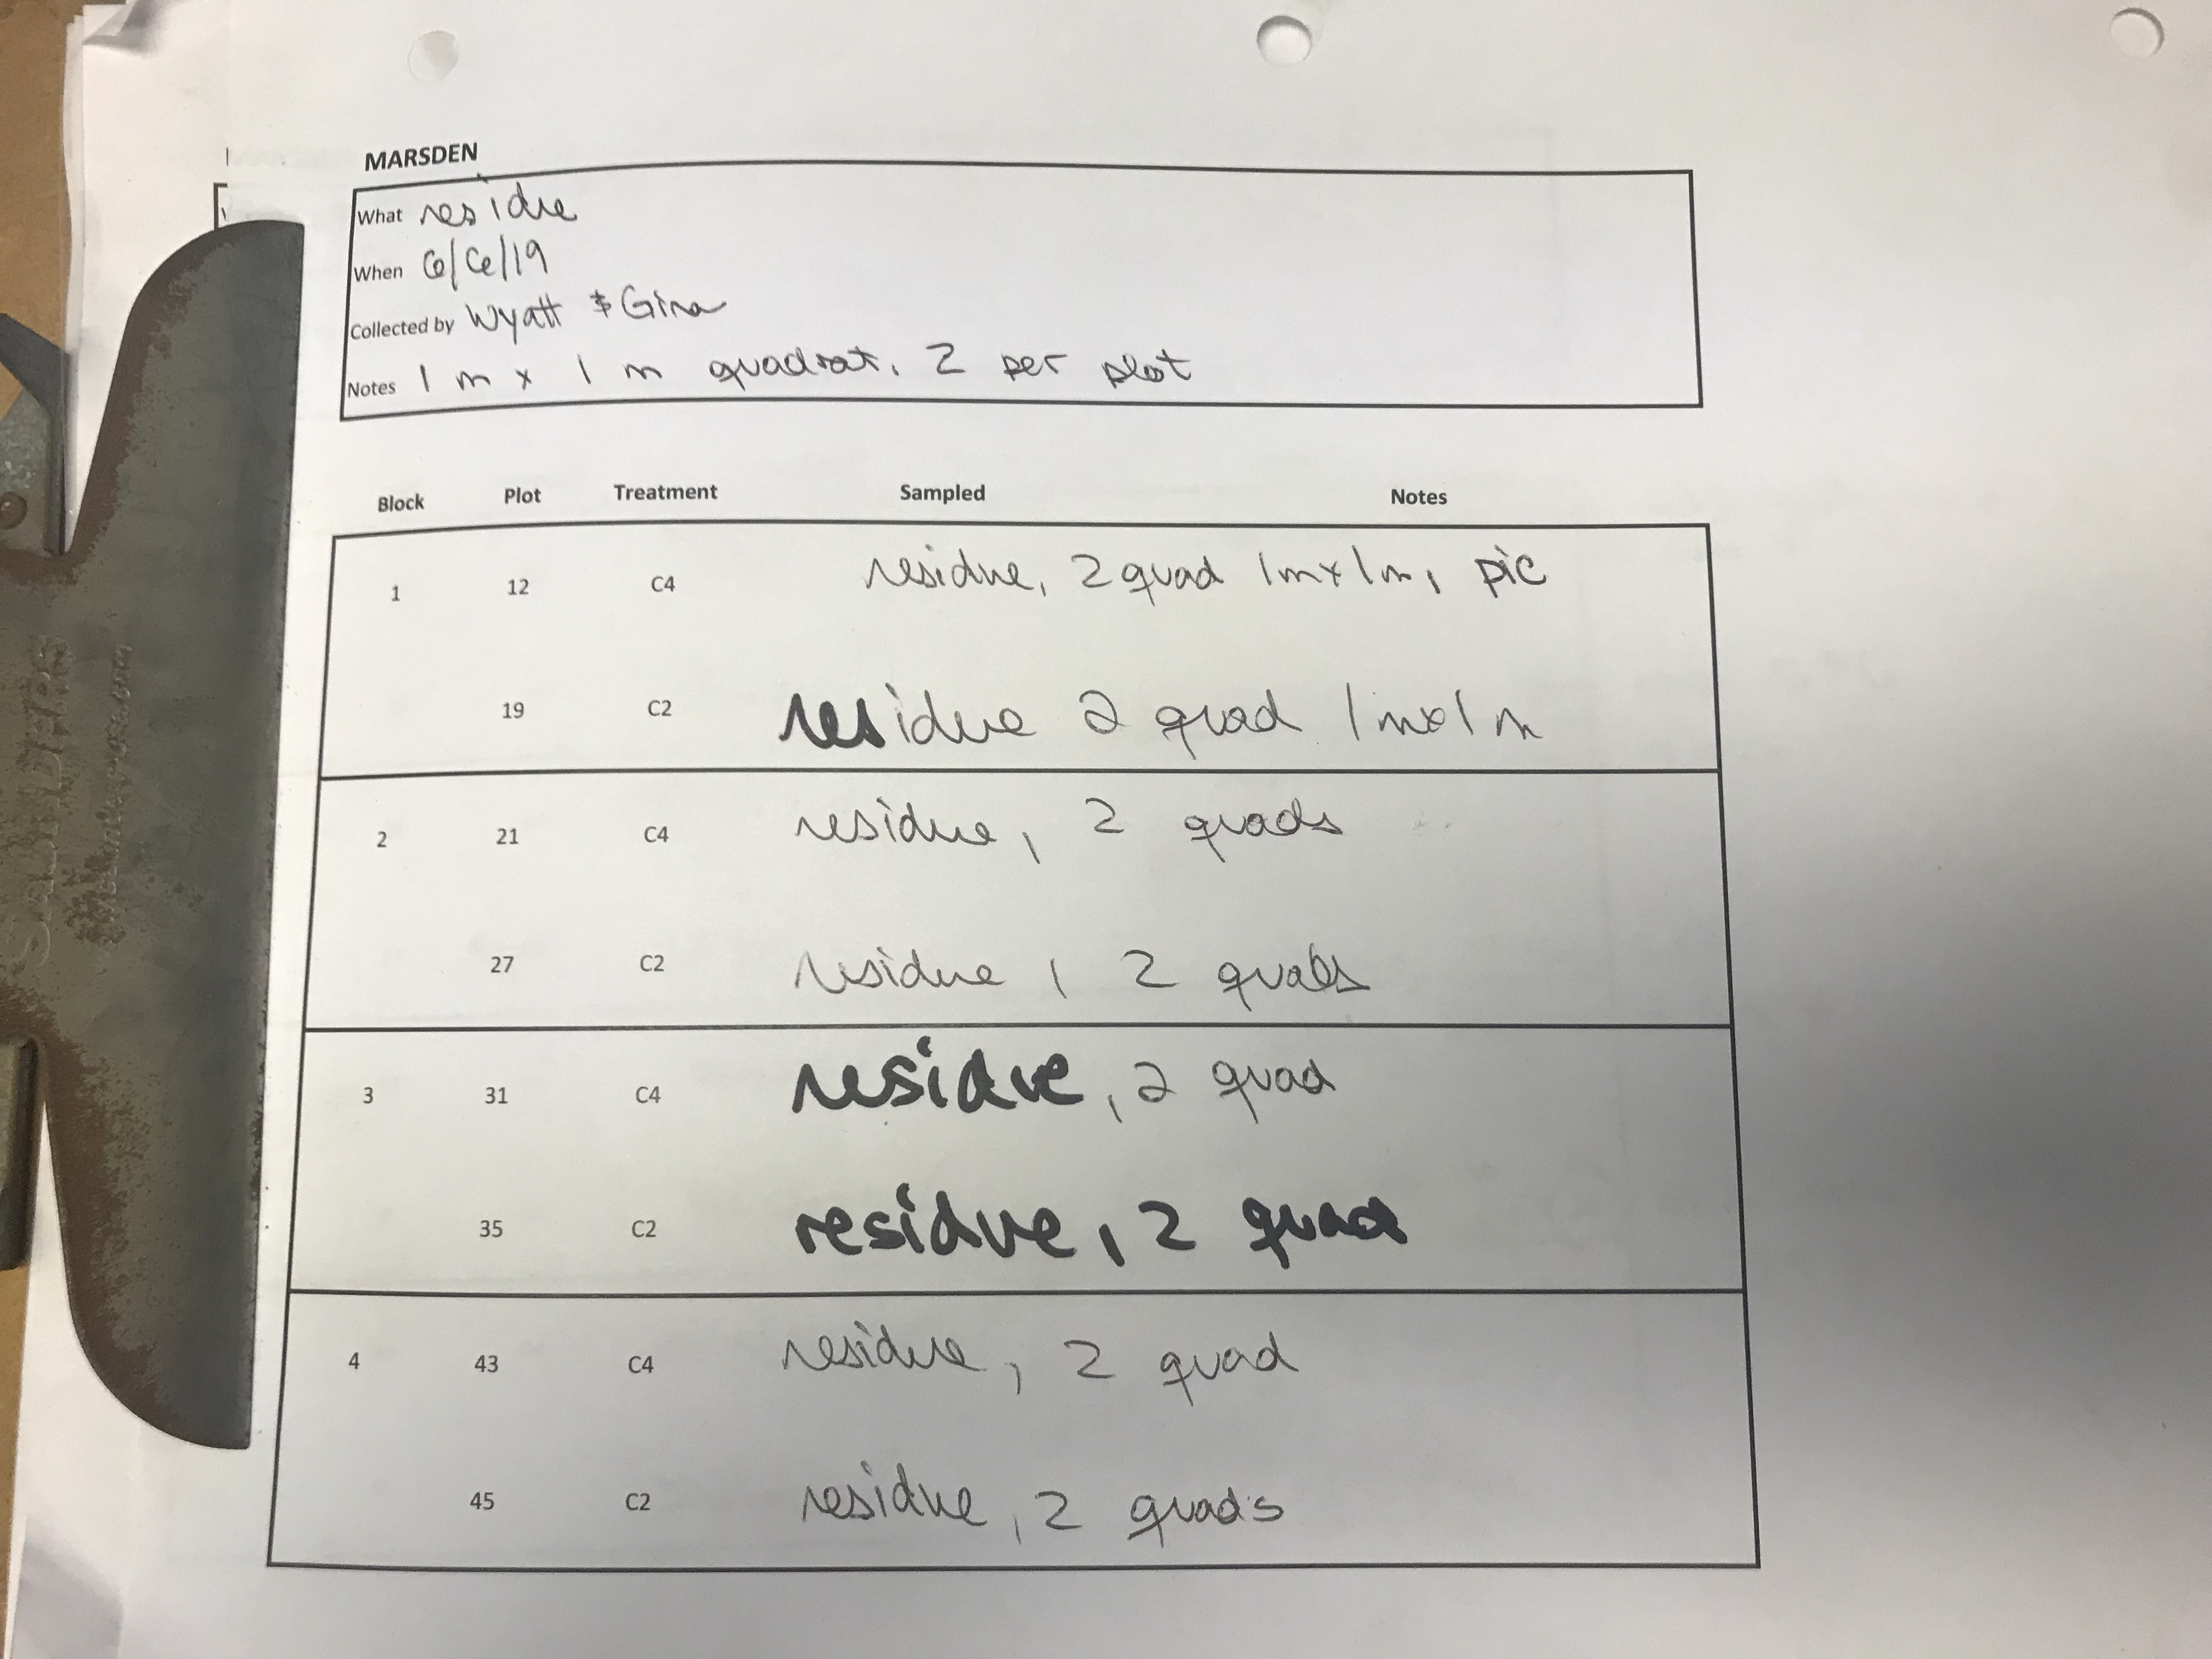 MARSDEN
What residue
When 6/6/19
Collected by Wyatt & Gina
Notes 1 m x 1 m quadrat, 2 per plot
Block Plot Treatment Sampled Notes
1 12 C4 residue, 2 quad 1mx1m, pic
19 C2 residue 2 quad 1mx1m
2 21 C4 residue, 2 quads
27 C2 residue, 2 quads
3 31 C4 residue, 2 quad
35 C2 residue, 2 quad
4 43 C4 residue, 2 quad
45 C2 residue, 2 quads